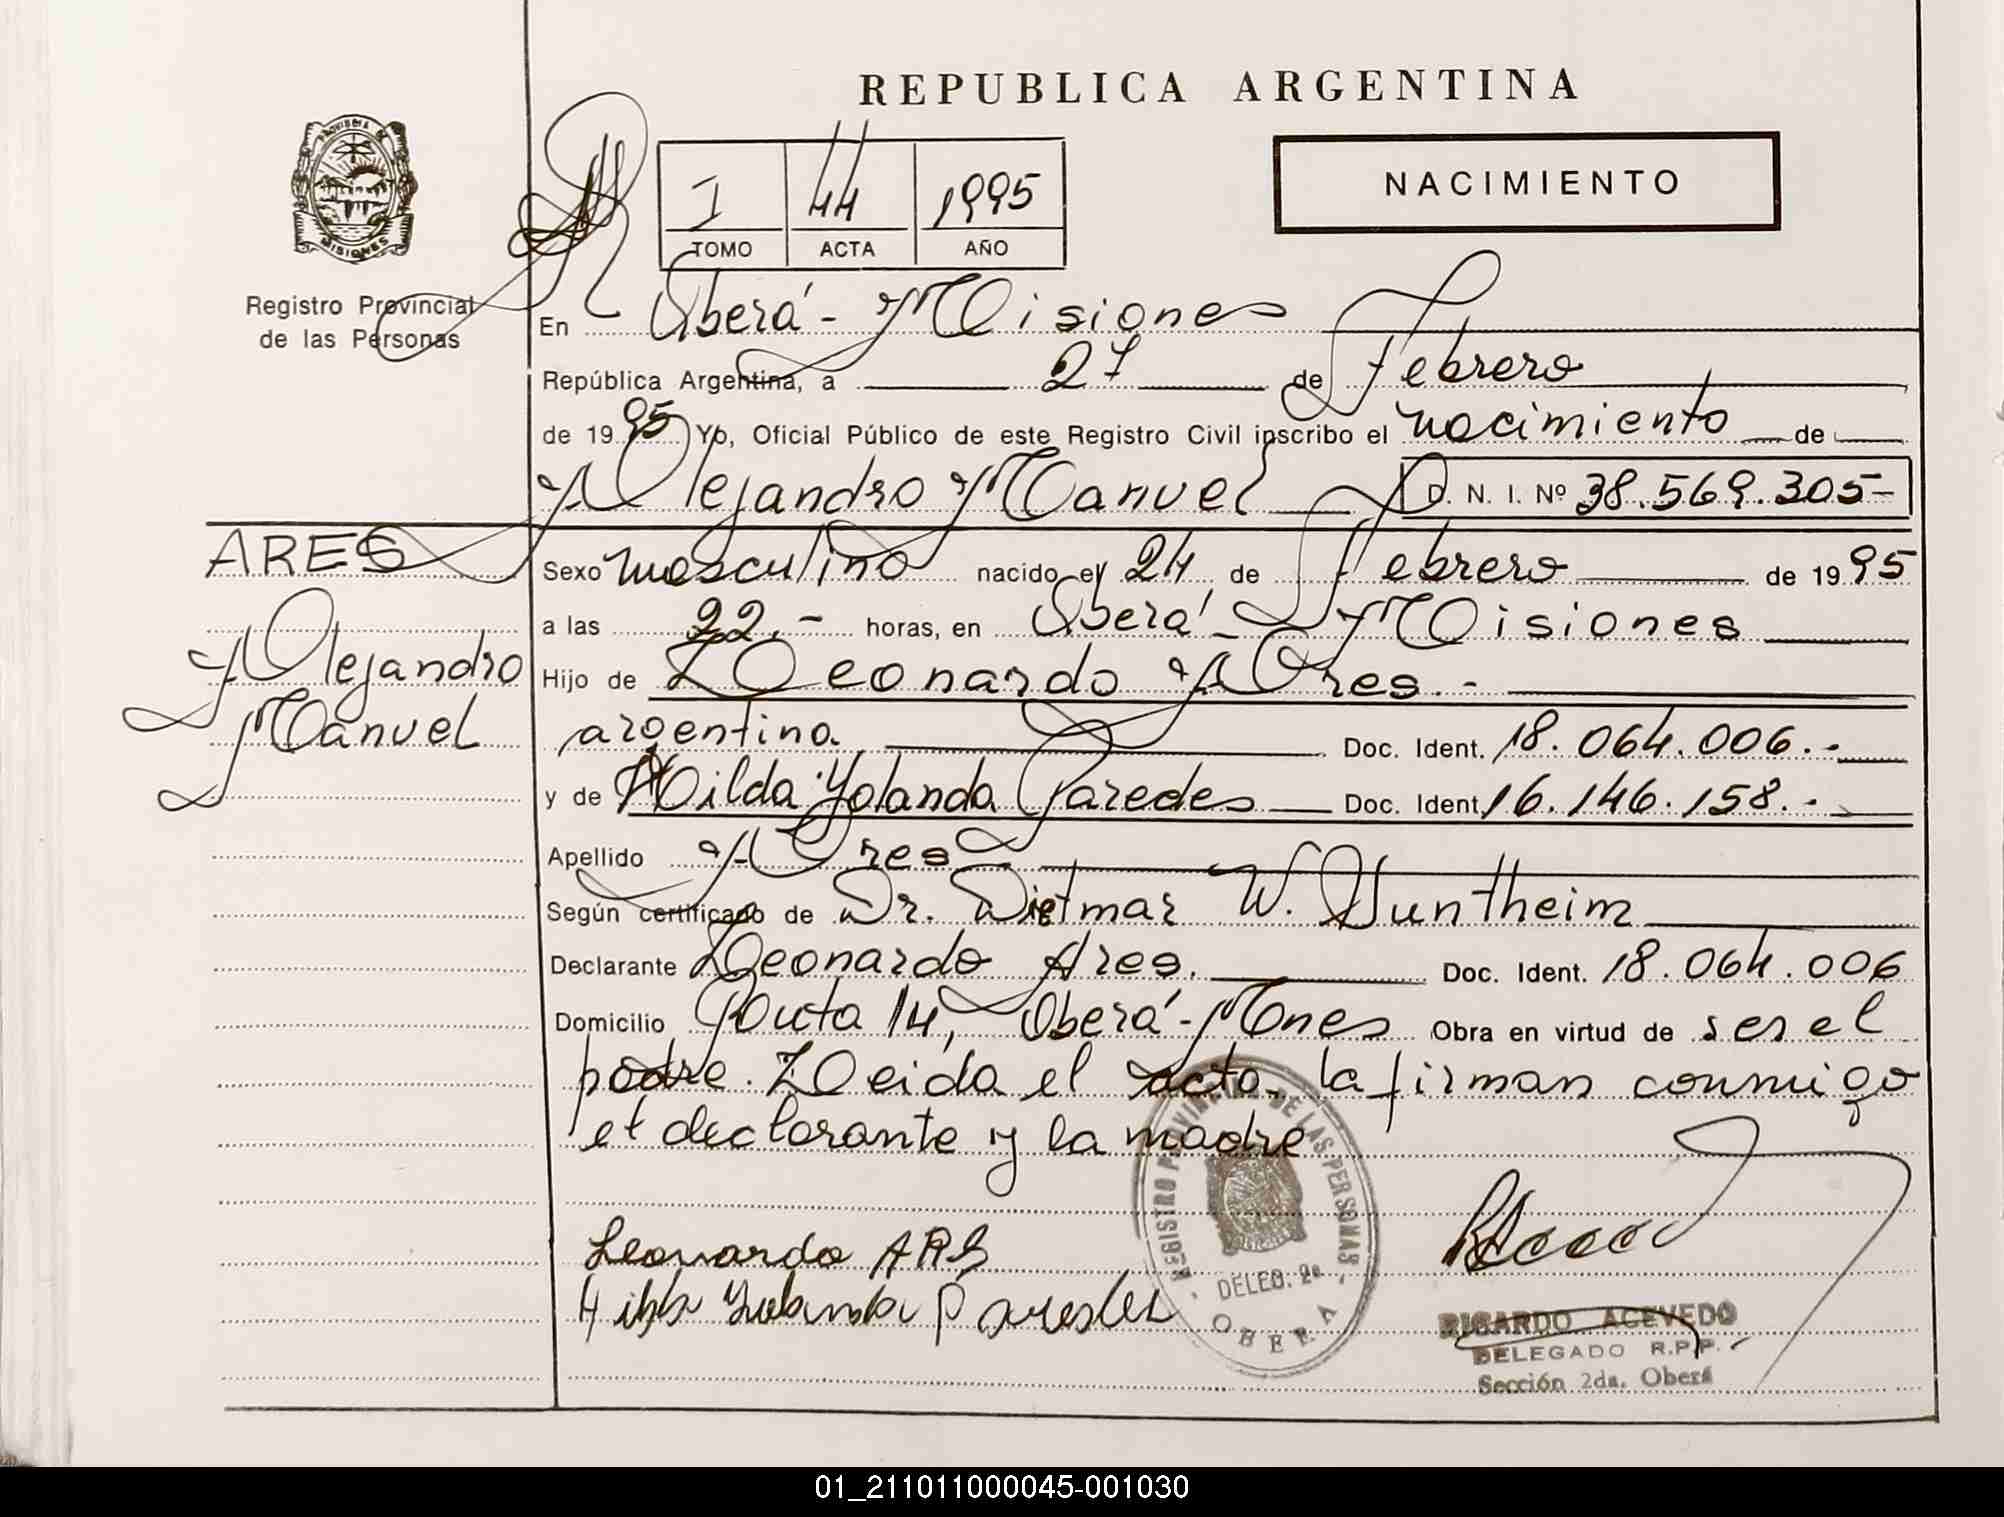 REPUBLICA ARGENTINA
PROVINCIA DE
MISIONES
Registro Provincial
de las Personas
I 44 1995
TOMO ACTA AÑO
NACIMIENTO
En Oberá - Misiones
República Argentina, a 27 de Febrero
de 1995 Yo, Oficial Público de este Registro Civil inscribo el nacimiento de
Alejandro Manuel D. N. I. Nº 38.569.305-
ARES
Alejandro
Manuel
Sexo masculino nacido el 24 de Febrero de 1995
a las 22.- horas, en Oberá - Misiones
Hijo de Leonardo Ares.-
argentina Doc. Ident. 18.064.006.-
y de Hilda Yolanda Paredes Doc. Ident. 16.146.158.-
Apellido Ares
Según certificado de Dr. Dietmar W. Huntheim
Declarante Leonardo Ares. Doc. Ident. 18.064.006
Domicilio Ruta 14, Oberá - Mnes Obra en virtud de ser el
padre. Leida el acta, la firman conmigo
el declarante y la madre
REGISTRO PROVINCIAL DE LAS PERSONAS
DELEG. 2a
OBERA
Leonardo ARES
Hilda Yolanda Paredes
RICARDO ACEVEDO
DELEGADO R.P.P.
Sección 2da. Oberá
01_211011000045-001030